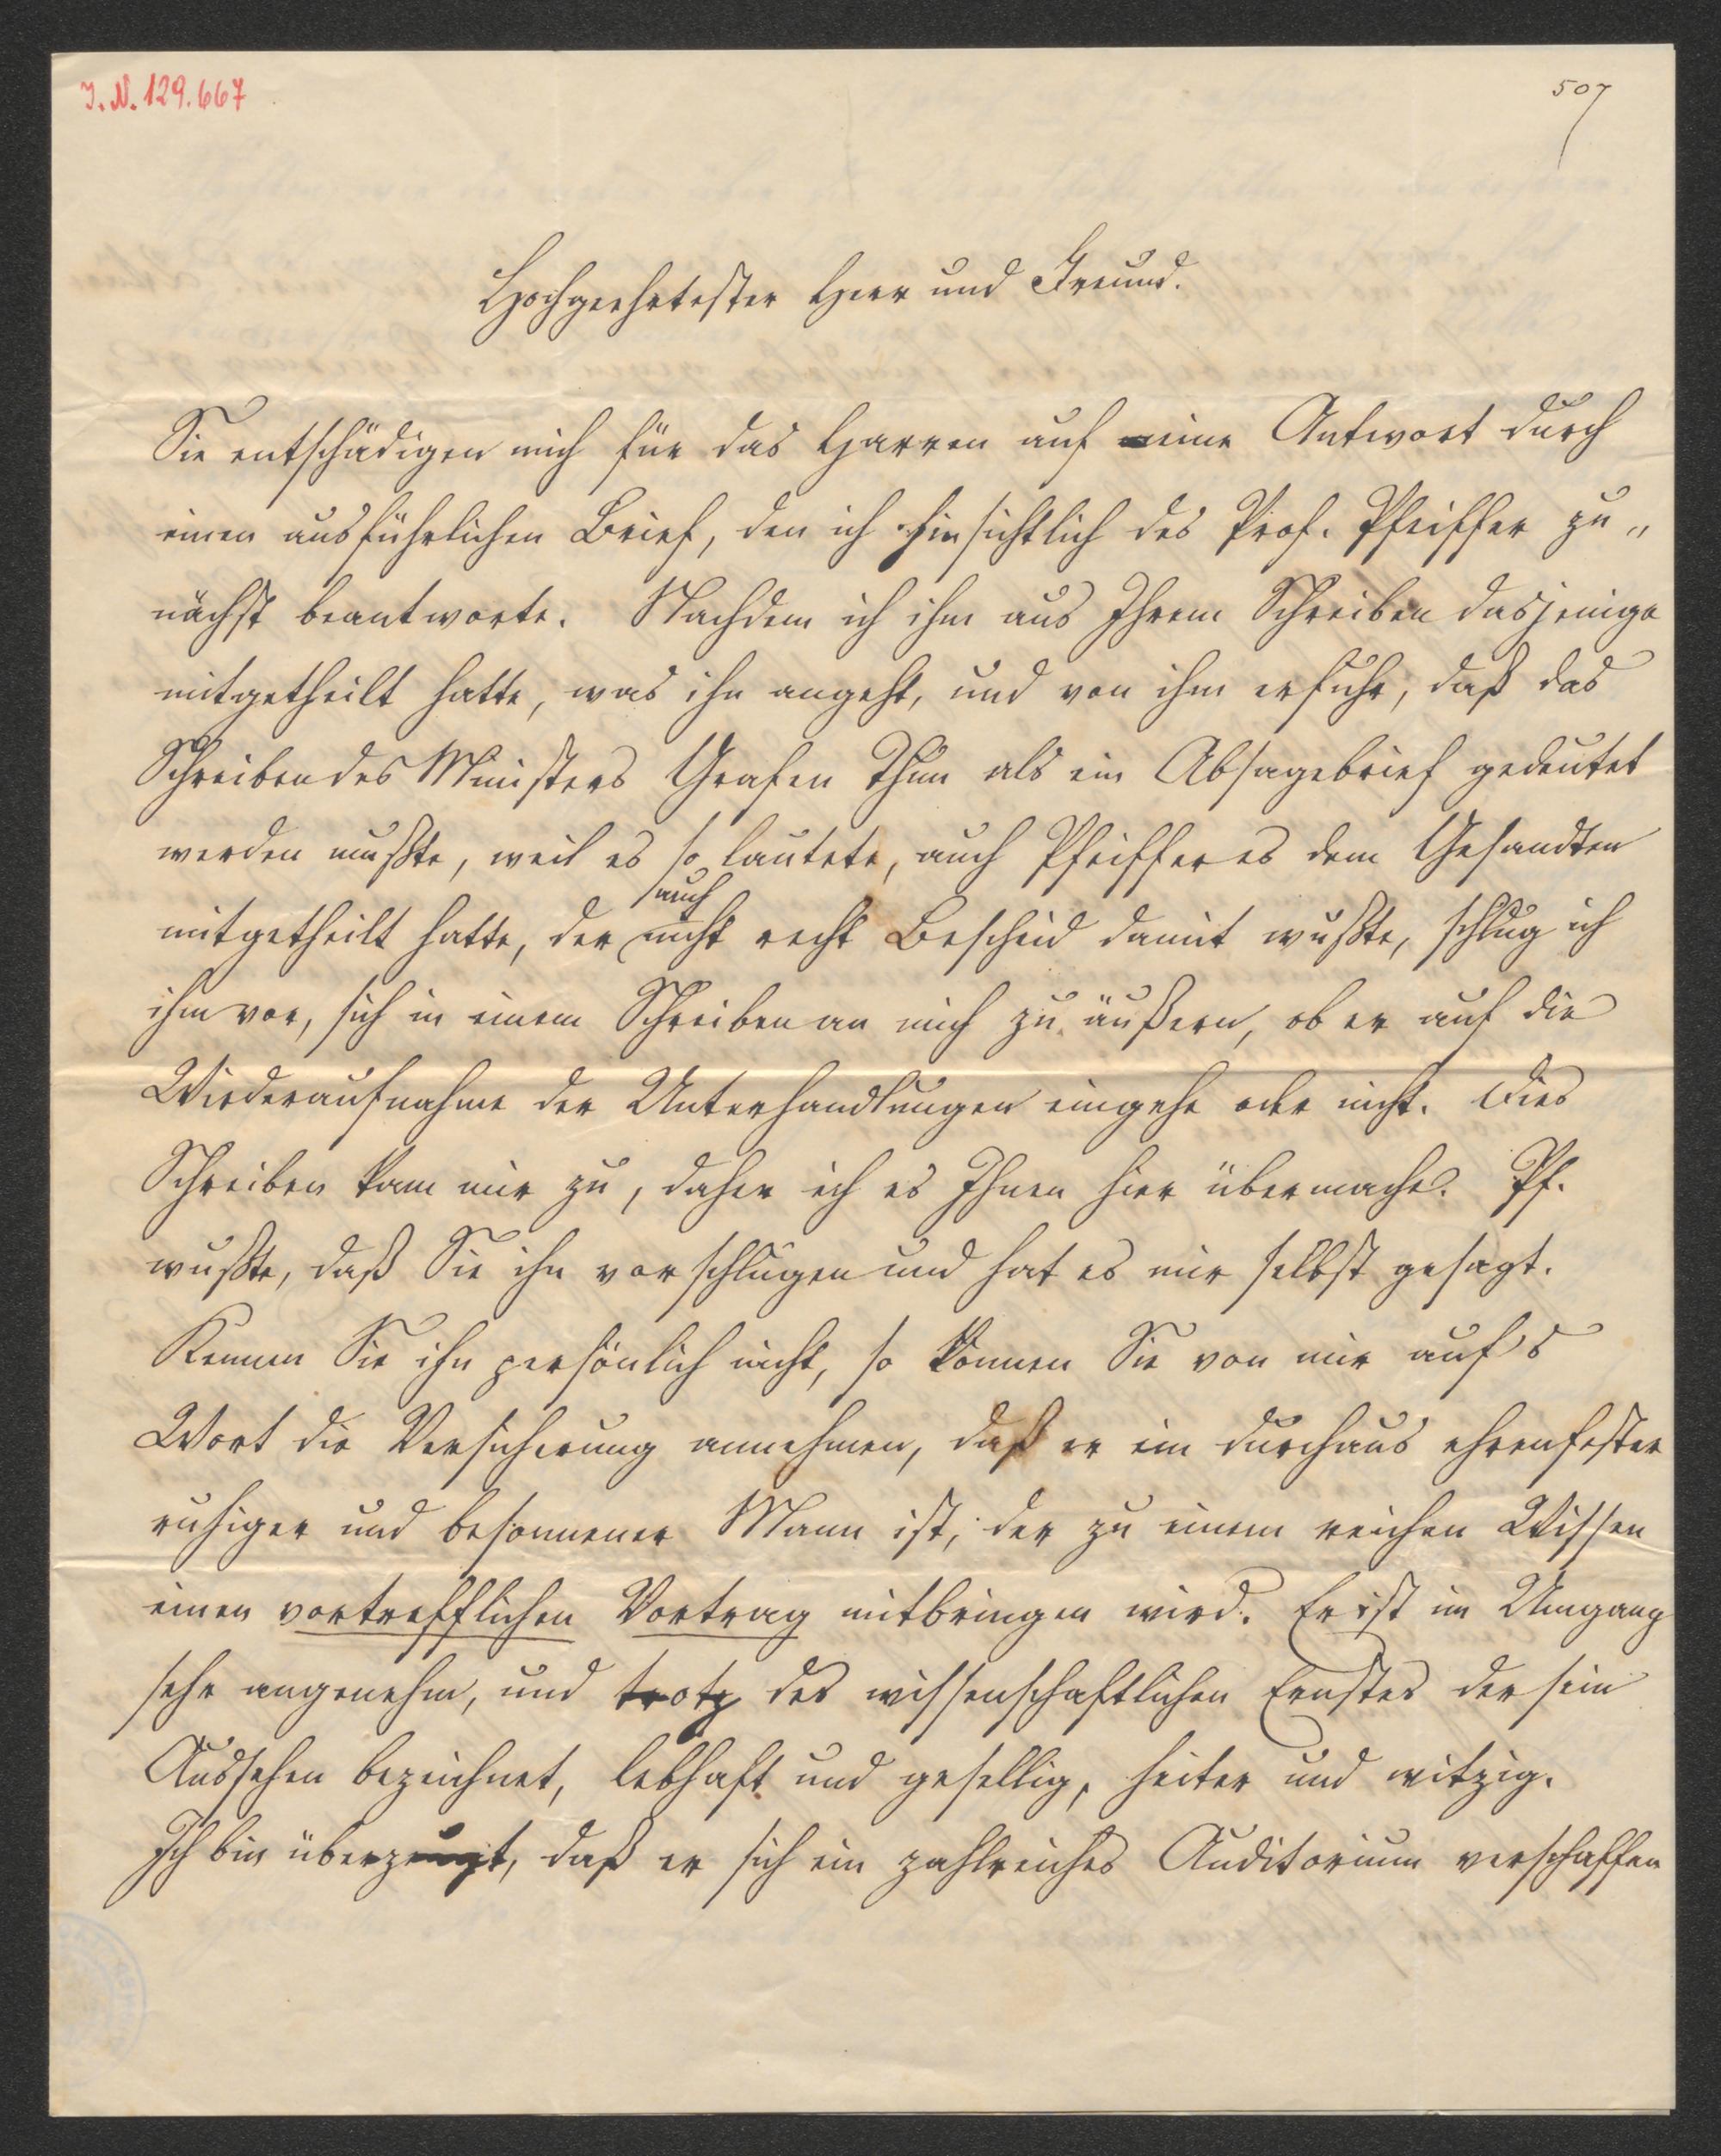 J. N. 129.667
507
Hochgeehrtester Herr und Freund.
Sie entschädigen mich für das Harren auf eine Antwort durch
einen ausführlichen Brief, den ich hinsichtlich des Prof. Pfeiffer zu„
nächst beantworte. Nachdem ich ihm aus Ihrem Schreiben dasjenige
mitgetheilt hatte, was ihn angeht, und von ihm erfuhr, daß das
Schreiben des Ministers Grafen Thun als ein Absagebrief gedeutet
werden mußte, weil es so lautete, auch Pfeiffer es dem Gesandten
auch
mitgetheilt hatte, der nicht recht Bescheid damit wußte, schlug ich
ihm vor, sich in einem Schreiben an mich zu äußern, ob er auf die
Wiederaufnahme der Unterhandlungen eingehe oder nicht. Dies
Schreiben kam mir zu, daher ich es Ihnen hier übermache. Pf.
wußte, daß Sie ihn vorschlugen und hat es mir selbst gesagt.
Kennen Sie ihn persönlich nicht, so können Sie von mir auf's
Wort die Versicherung annehmen, daß er ein durchaus ehrenfester
ruhiger und besonnener Mann ist, der zu einem reichen Wissen
einen vortrefflichen Vortrag mitbringen wird. Er ist im Umgang
sehr angenehm, und trotz des wissenschaftlichen Ernstes der sein
Aussehen bezeichnet, lebhaft und gesellig, heiter und witzig.
Ich bin überzeugt, daß er sich ein zahlreiches Auditorium verschaffen